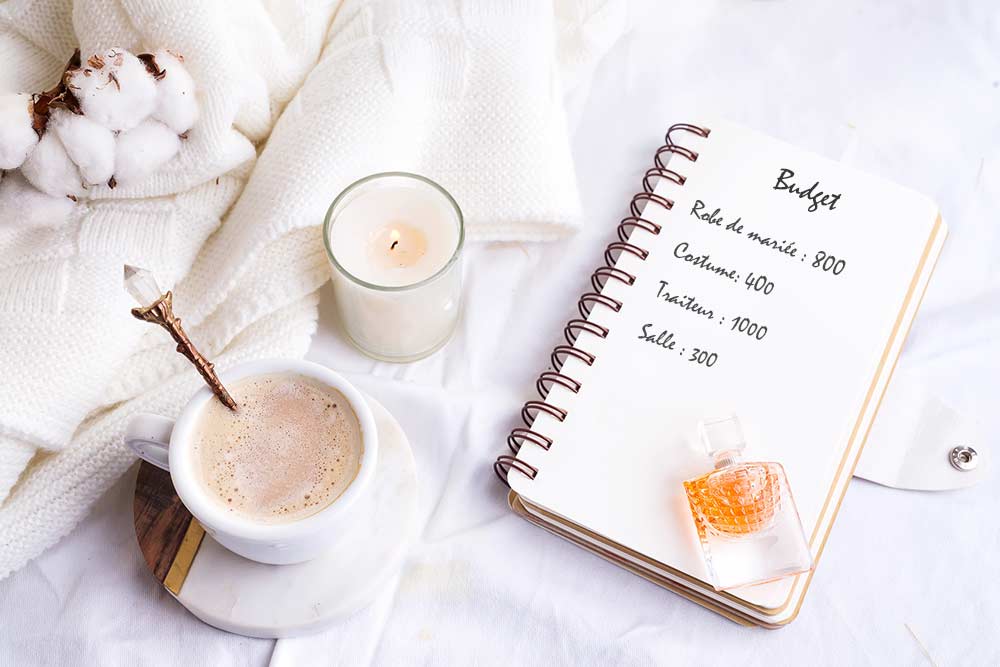 Budget
Robe de mariée : 800
Costume: 400
Traiteur : 1000
Salle : 300